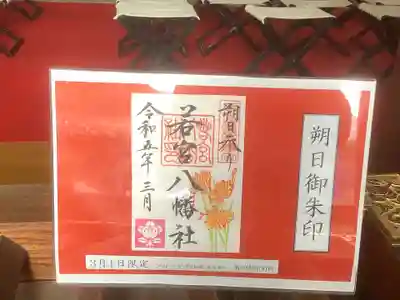 朔日御朱印
朔日参
若宮八幡社
令和五年三月
3月1日限定